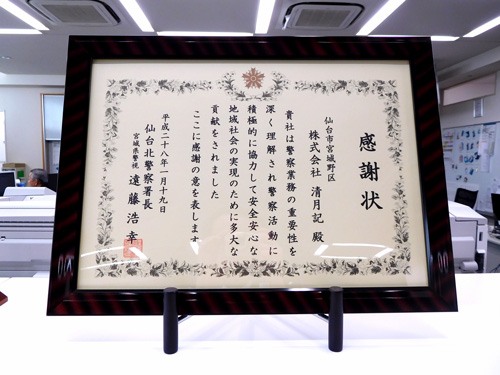 感謝状
仙台市宮城野区
株式会社 清月記 殿
貴社は警察業務の重要性を
深く理解され警察活動に
積極的に協力して安全安心な
地域社会の実現のために多大な
貢献をされました
ここに感謝の意を表します
平成二十八年一月十九日
仙台北警察署長
宮城県警視 遠藤浩幸